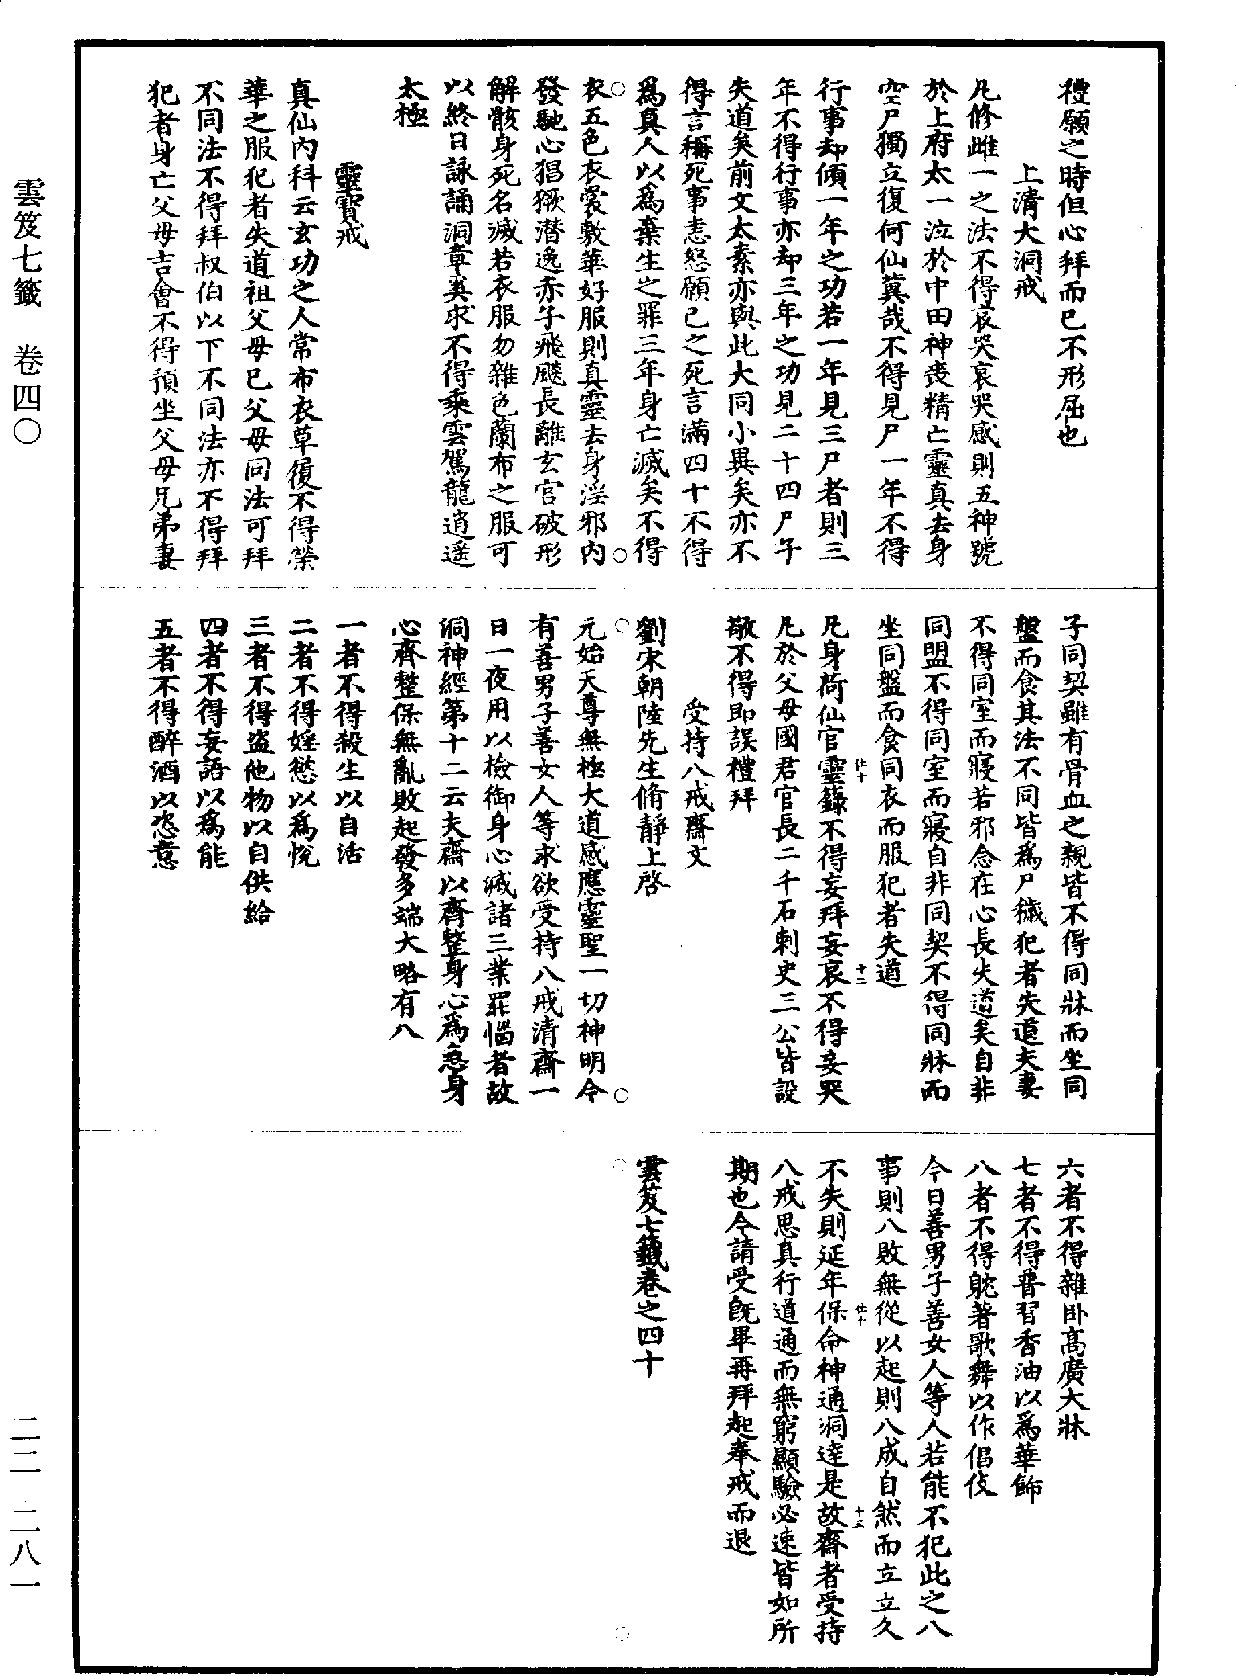 禮願之時但心拜而已不形屈也
上清大洞戒
凡修雌一之法不得哀哭哀哭感則五神號
於上府太一泣於中田神喪精亡靈真去身
空尸獨立復何仙冀哉不得見尸一年不得
行事却傾一年之功若一年見三尸者則三
年不得行事亦却三年之功見二十四尸乎
失道矣前文太素亦與此大同小異矣亦不
得言稱死事恚怒願己之死言滿四十不得
為真人以為棄生之罪三年身亡滅矣不得
衣五色衣裳敷華好服則真靈去身淫邪內
發馳心猖獗潛逸赤子飛颺長離玄宮破形
解骸身死名滅若衣服勿雜色蘭布之服可
以終日詠誦洞章真求不得乘雲駕龍逍遥
太極
靈寶戒
真仙內科云玄功之人常布衣草履不得榮
華之服犯者失道祖父母已父母同法可拜
不同法不得拜叔伯以下不同法亦不得拜
犯者身亡父母吉會不得預坐父母兄弟妻
子同契雖有骨血之親皆不得同牀而坐同
盤而食其法不同皆為尸穢犯者失道夫妻
不得同室而寢若邪念在心長失道矣自非
同盟不得同室而寢自非同契不得同牀而
坐同盤而食同衣而服犯者失道
凡身荷仙官靈籙不得妄拜妄哀不得妄哭
凡於父母國君官長二千石刺史三公皆設
敬不得即誤禮拜
受持八戒齋文
劉宋朝陸先生脩靜上啓
元始天尊無極大道感應靈聖一切神明今
有善男子善女人等求欲受持八戒清齋一
日一夜用以檢御身心滅諸三業罪惱者故
洞神經第十二云夫齋以齊整身心為急身
心齊整保無亂敗起發多端大略有八
一者不得殺生以自活
二者不得婬慾以為悅
三者不得盜他物以自供給
四者不得妄語以為能
五者不得醉酒以恣意
六者不得雜卧高廣大牀
七者不得普習香油以為華飾
八者不得躭著歌舞以作倡伎
今日善男子善女人等人若能不犯此之八
事則八敗無從以起則八成自然而立立久
不失則延年保命神通洞達是故齋者受持
八戒思真行道通而無窮顯驗必速皆如所
期也今請受既畢再拜起奉戒而退
雲笈七籤卷之四十
雲笈七籤　卷四〇
二二—二八一